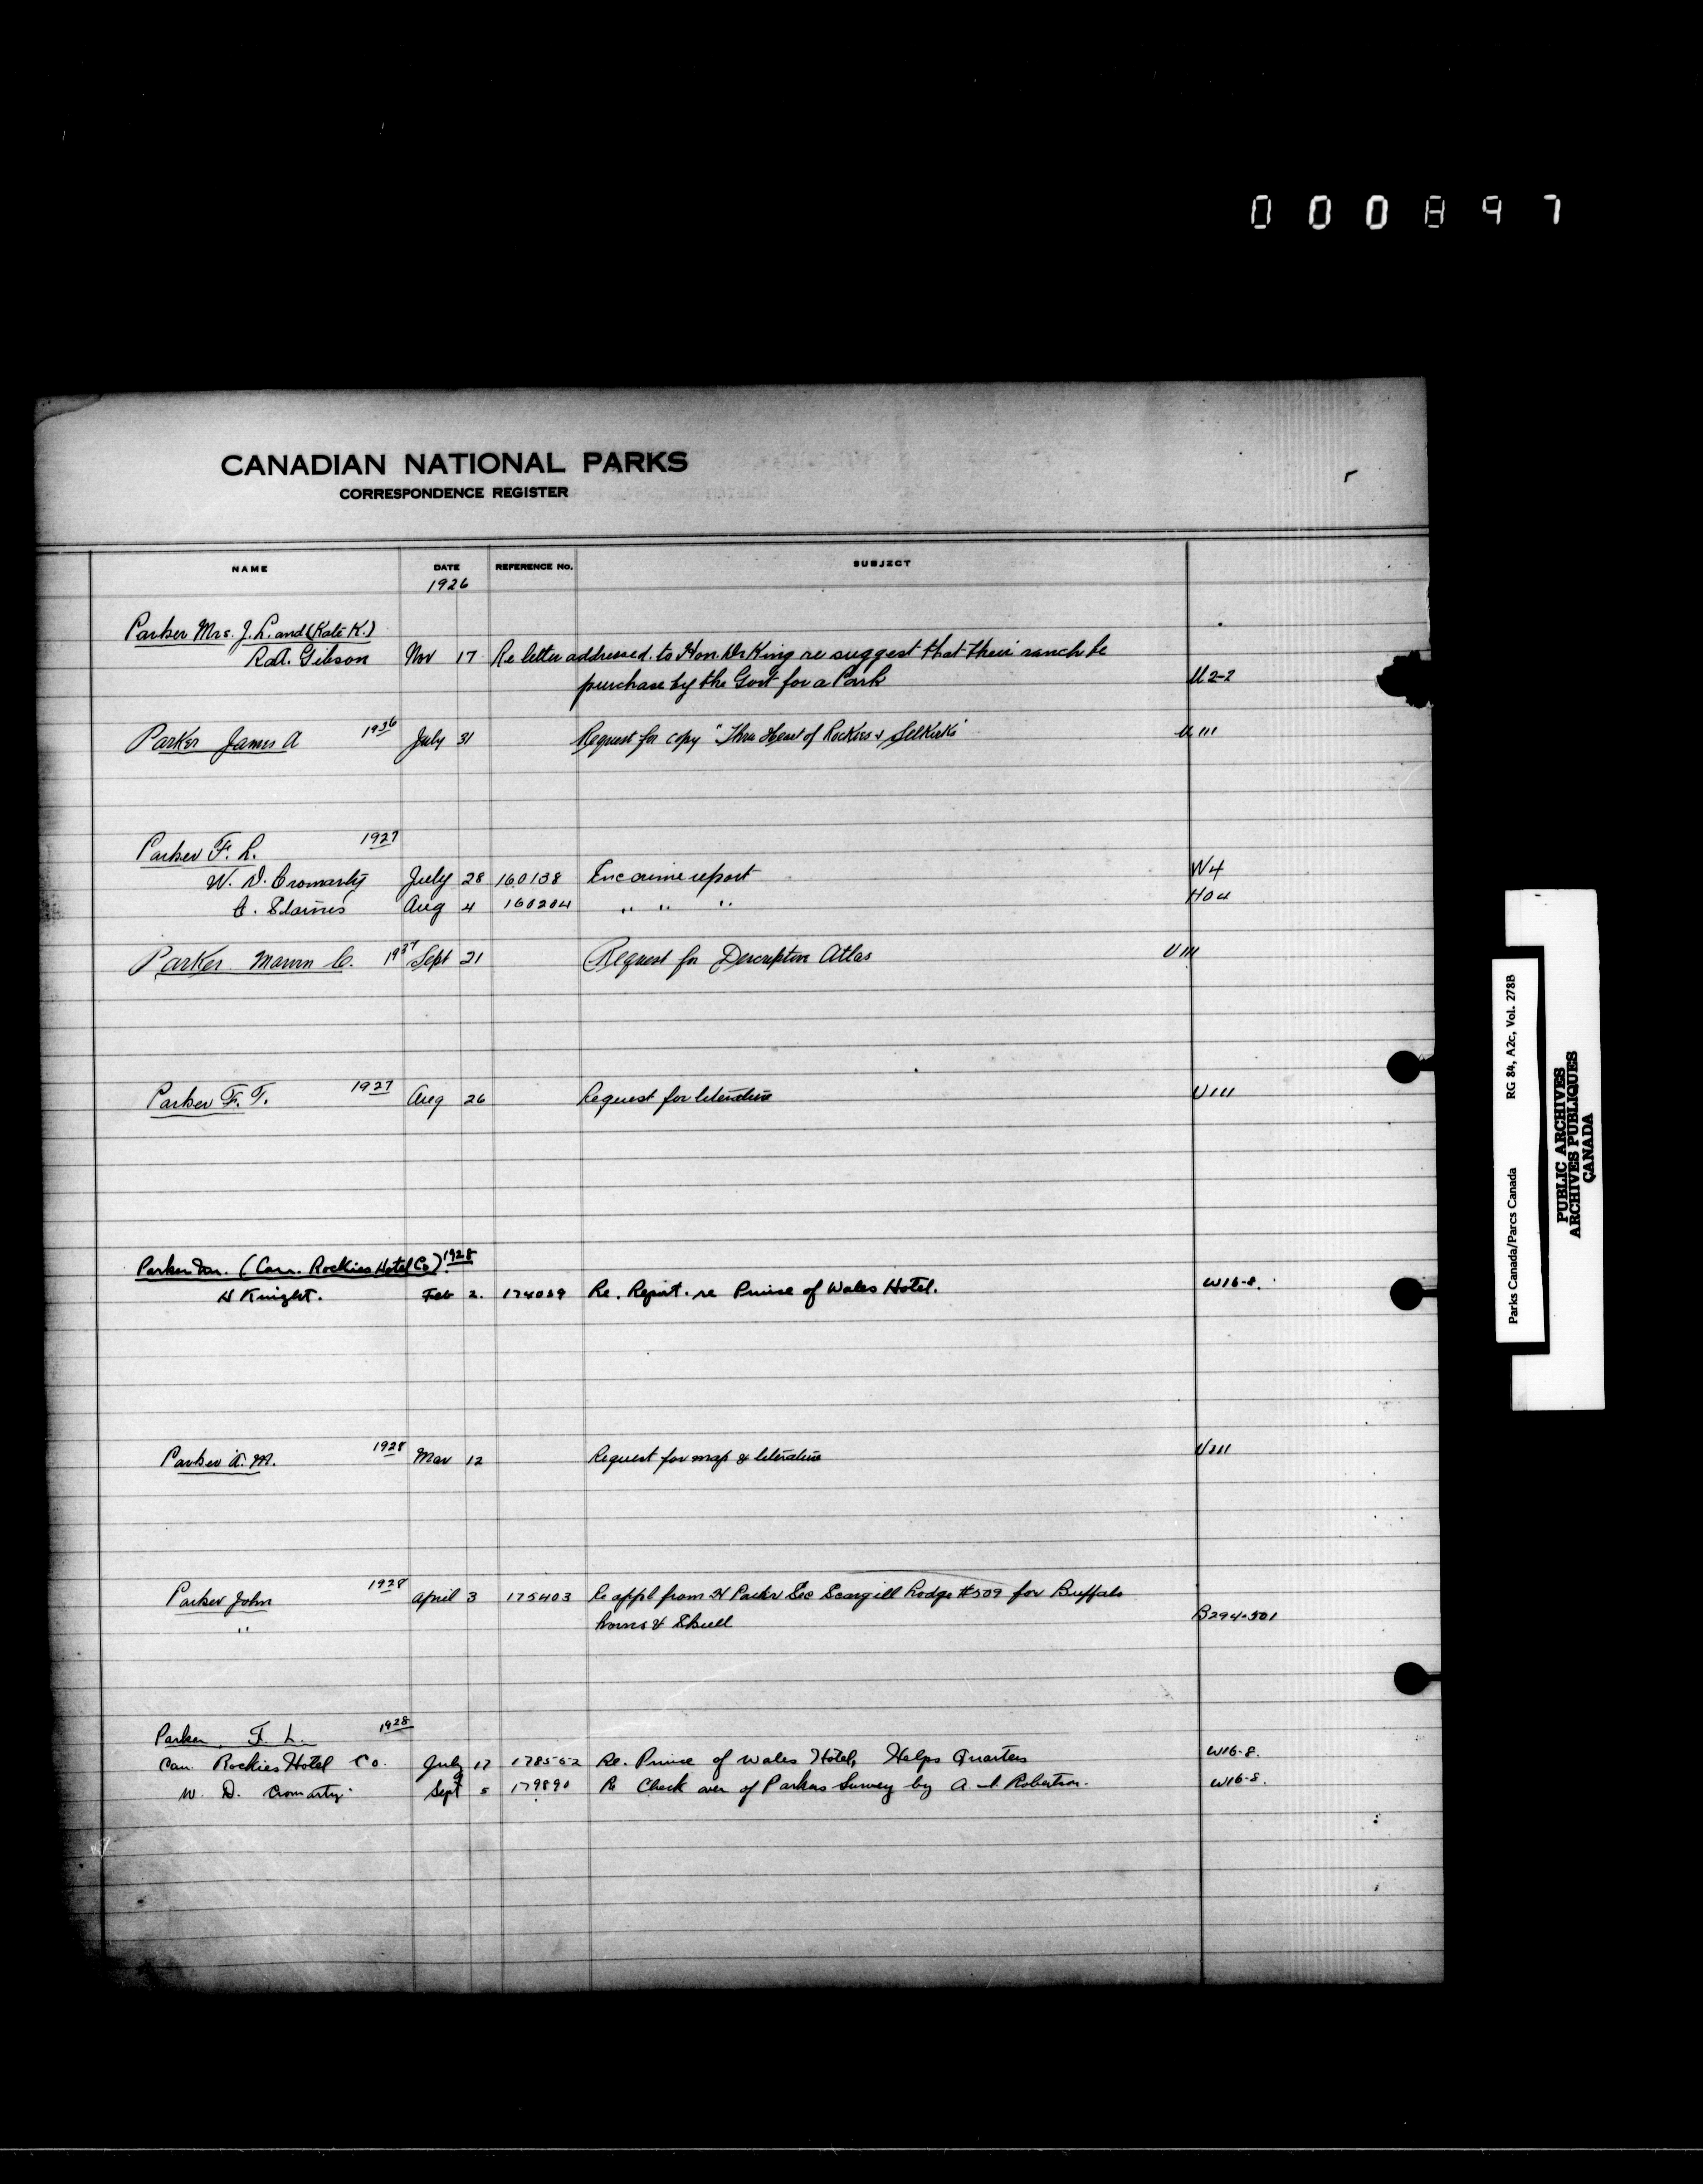 000897
CANADIAN NATIONAL PARKS
CORRESPONDENCE REGISTER
NAME DATE REFERENCE No. SUBJECT
1926
Parker Mrs. J. L. and (Kate K.)
R.A. Gibson Nov 17 Re letter addressed to Hon. Dr King re suggest that their ranch be
purchase by the Govt for a Park U2-2
Parker James A 1936 July 31 Request for copy "Thru Heart of Rockies & Selkirks" U111
Parker F. L. 1927
W. D. Cromarty July 28 160138 Enc crime report W4
C. Starnes Aug 4 160204 " " " H04
Parker Marvin C. 1937 Sept 21 Request for Descriptive Atlas U111
Parker F. T. 1927 Aug 26 Request for literature U111
Parker Mr. (Can. Rockies Hotel Co) 1928
H Knight. Feb 2. 174039 Re. Report. re Prince of Wales Hotel. W16-8.
Parker A. M. 1928 Mar 12 Request for map & literature U111
Parker John 1928 April 3 175403 Re appl from H Parker Sec Scargill Lodge #509 for Buffalo
" horns & Skull B294-501
Parker F. L. 1928
Can. Rockies Hotel Co. July 17 178552 Re. Prince of Wales Hotel, Helps Quarters W16-8.
W. D. Cromarty Sept 5 179890 Re Check over of Parkers Survey by A. Robertson. W16-8.
Parks Canada/Parcs Canada RG 84, A2c, Vol. 278B
PUBLIC ARCHIVES
ARCHIVES PUBLIQUES
CANADA